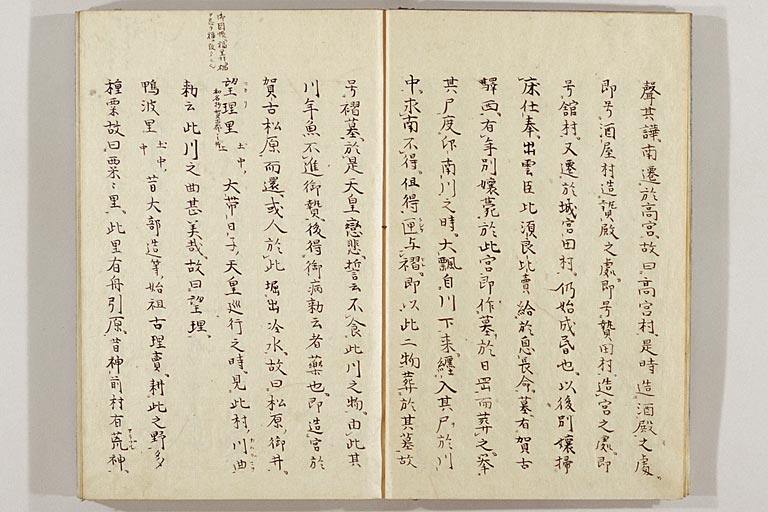 聲甚譁南遷於高宮故曰高宮村是時造酒殿之處
即号酒屋村造贄殿之處即号贄田村造宮之處即
号舘村又遷於城宮田村仍始成昏也以後別孃掃
床仕奉出雲臣比須良比賣給於息長命墓有賀古
驛西有年別孃薨於此宮即作墓於日岡而葬之擧
其尸度印南川之時大飄自川下来纏入其尸於川
中求南不得但得匣与褶即以此二物葬於其墓故
号褶墓於是天皇戀悲誓云不食此川之物由此其
川年魚不進御贄後得御病勅云者藥也即造宮於
賀古松原而還或人於此堀出冷水故曰松原御井
望理里 土中上 大帯日子天皇巡行之時見此村川曲
勅云此川之曲甚美哉故曰望理
鴨波里 土中中 昔大部造等始祖古理賣耕此之野多
種粟故曰粟〻里此里有舟引原昔神前村有荒神